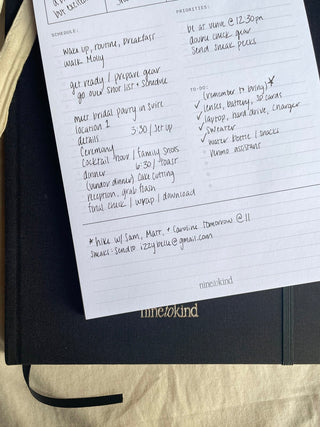 SCHEDULE:
wake up, routine, breakfast
walk Molly
get ready / prepare gear
go over shot list + schedule
meet bridal party in suite
location 1
details
3:30 / set up
Ceremony
cocktail hour / family shots
dinner 6:30 / toast
(vendor dinner) cake cutting
reception, grab flash
final check / wrap / download
PRIORITIES:
be at venue @ 12:30pm
double check gear
send sneak peeks
TO-DO:
(remember to bring) *
✓ lenses, battery, SD cards
✓ laptop, hard drive, charger
✓ sweater
✓ water bottle / snacks
venmo assistant
* hike w/ Sam, Matt, + Caroline tomorrow @ 11
sneaks: send to izzybelle@gmail.com
ninetokind
ninetokind